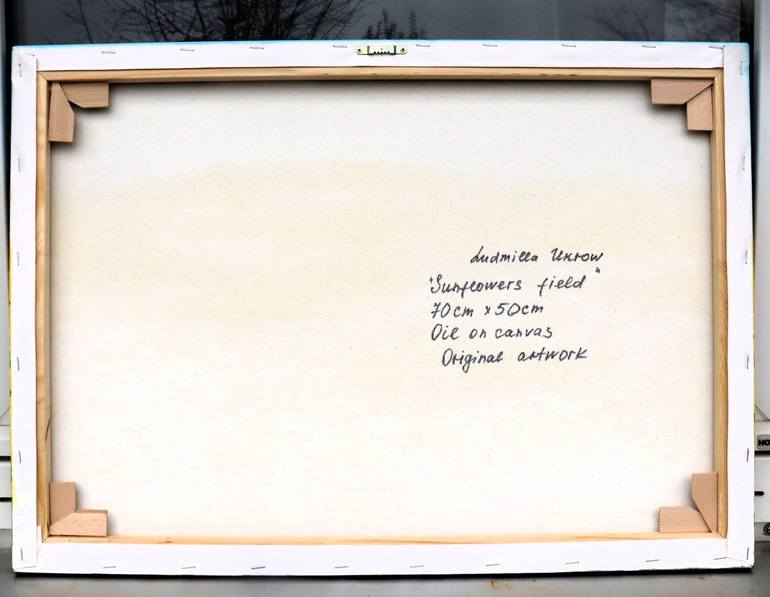 Ludmilla Ukrow
"Sunflowers field"
70cm x 50cm
Oil on canvas
Original artwork